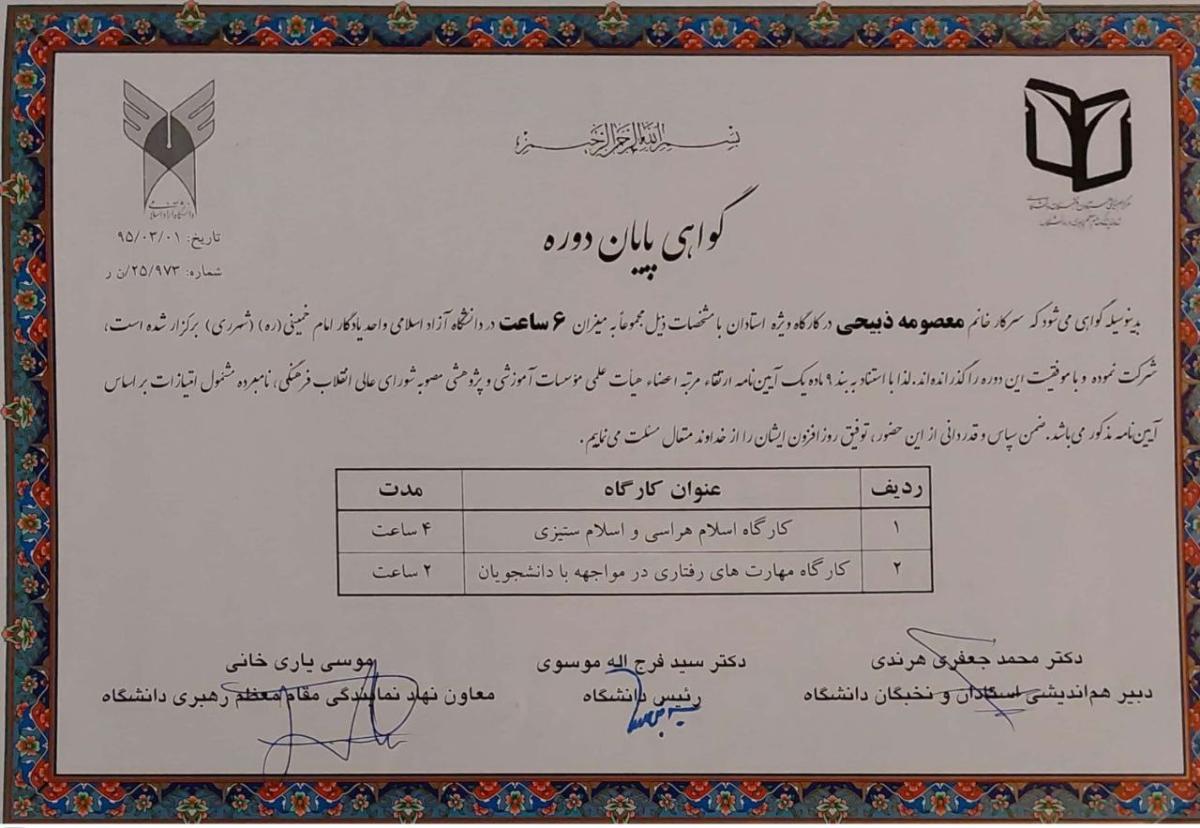 بسم الله الرحمن الرحیم
دانشگاه آزاد اسلامی
تاریخ: ۹۵/۰۳/۰۱
شماره: ۲۵/۹۷۳/ن ر
گواهی پایان دوره
بدینوسیله گواهی می‌شود که سرکار خانم معصومه ذبیحی در کارگاه ویژه استادان با مشخصات ذیل مجموعاً به میزان ۶ ساعت در دانشگاه آزاد اسلامی واحد یادگار امام خمینی (ره) (شهرری) برگزار شده است،
شرکت نموده و با موفقیت این دوره را گذرانده‌اند. لذا با استناد به بند ۹ ماده یک آیین‌نامه ارتقاء مرتبه اعضاء هیأت علمی مؤسسات آموزشی و پژوهشی مصوبه شورای عالی انقلاب فرهنگی، نامبرده مشمول امتیازات بر اساس
آیین‌نامه مذکور می‌باشد. ضمن سپاس و قدردانی از این حضور، توفیق روزافزون ایشان را از خداوند متعال مسئلت می‌نماییم.
ردیف عنوان کارگاه مدت
۱ کارگاه اسلام هراسی و اسلام ستیزی ۴ ساعت
۲ کارگاه مهارت های رفتاری در مواجهه با دانشجویان ۲ ساعت
دکتر محمد جعفری هرندی
دبیر هم‌اندیشی استادان و نخبگان دانشگاه
دکتر سید فرج اله موسوی
رئیس دانشگاه
موسی یاری خانی
معاون نهاد نمایندگی مقام معظم رهبری دانشگاه